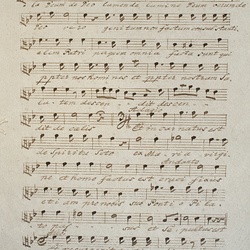 la Deum de Deo lumende lumine Deum verumde
Deo vero genitum non factum consubstanti
alem Patri per quem omnia facta sunt qui
ppter nos homines et ppter nostram Sa
lutem descen dit descen
dit de celis Et incarnatus est
Adagio
de Spiritu Sto ex Maria virgi
Andante
ne et homo factus est crucifixus
etiam pro nobis sub Pontio Pila
to pas sus et Sepultus est